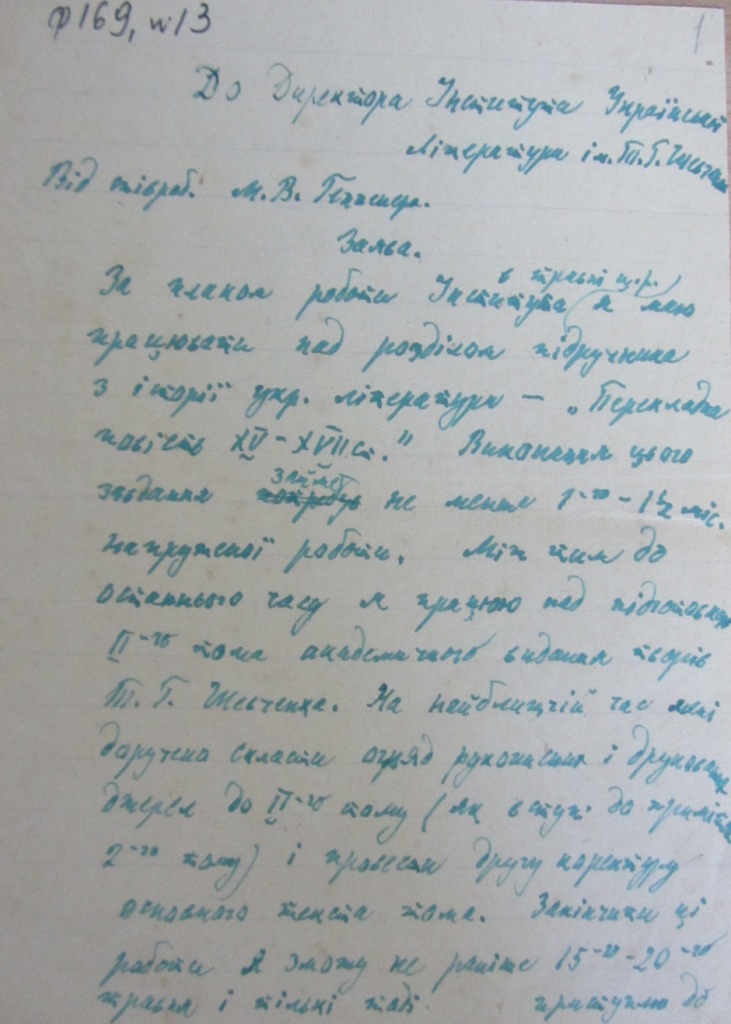 ф 169, № 13
1.
До Директора Інститута Української
Літератури ім. Т. Г. Шевченка
Від співроб. М. В.
Заява.
в травні ц.р.
За планом роботи Інститута я маю
працювати над розділом підручника
з історії укр. літератури – „Перекладна
повість XV – XVII ст." Виконання цього
займе
завдання потребує не менш 1-го – 1½ міс.
напруженої роботи. Між тим до
останнього часу я працюю над підготовкою
II-го тома академичного видання творів
Т. Г. Шевченка. На найблищчій час мені
доручено скласти огляд рукописних і друкованих
джерел до II-го тому (як вступ до приміток
2-го тому) і провести другу коректуру
основного текста тома. Закінчити ці
роботи я зможу не раніше 15-го – 20-го
травня і тільки тоді приступлю до